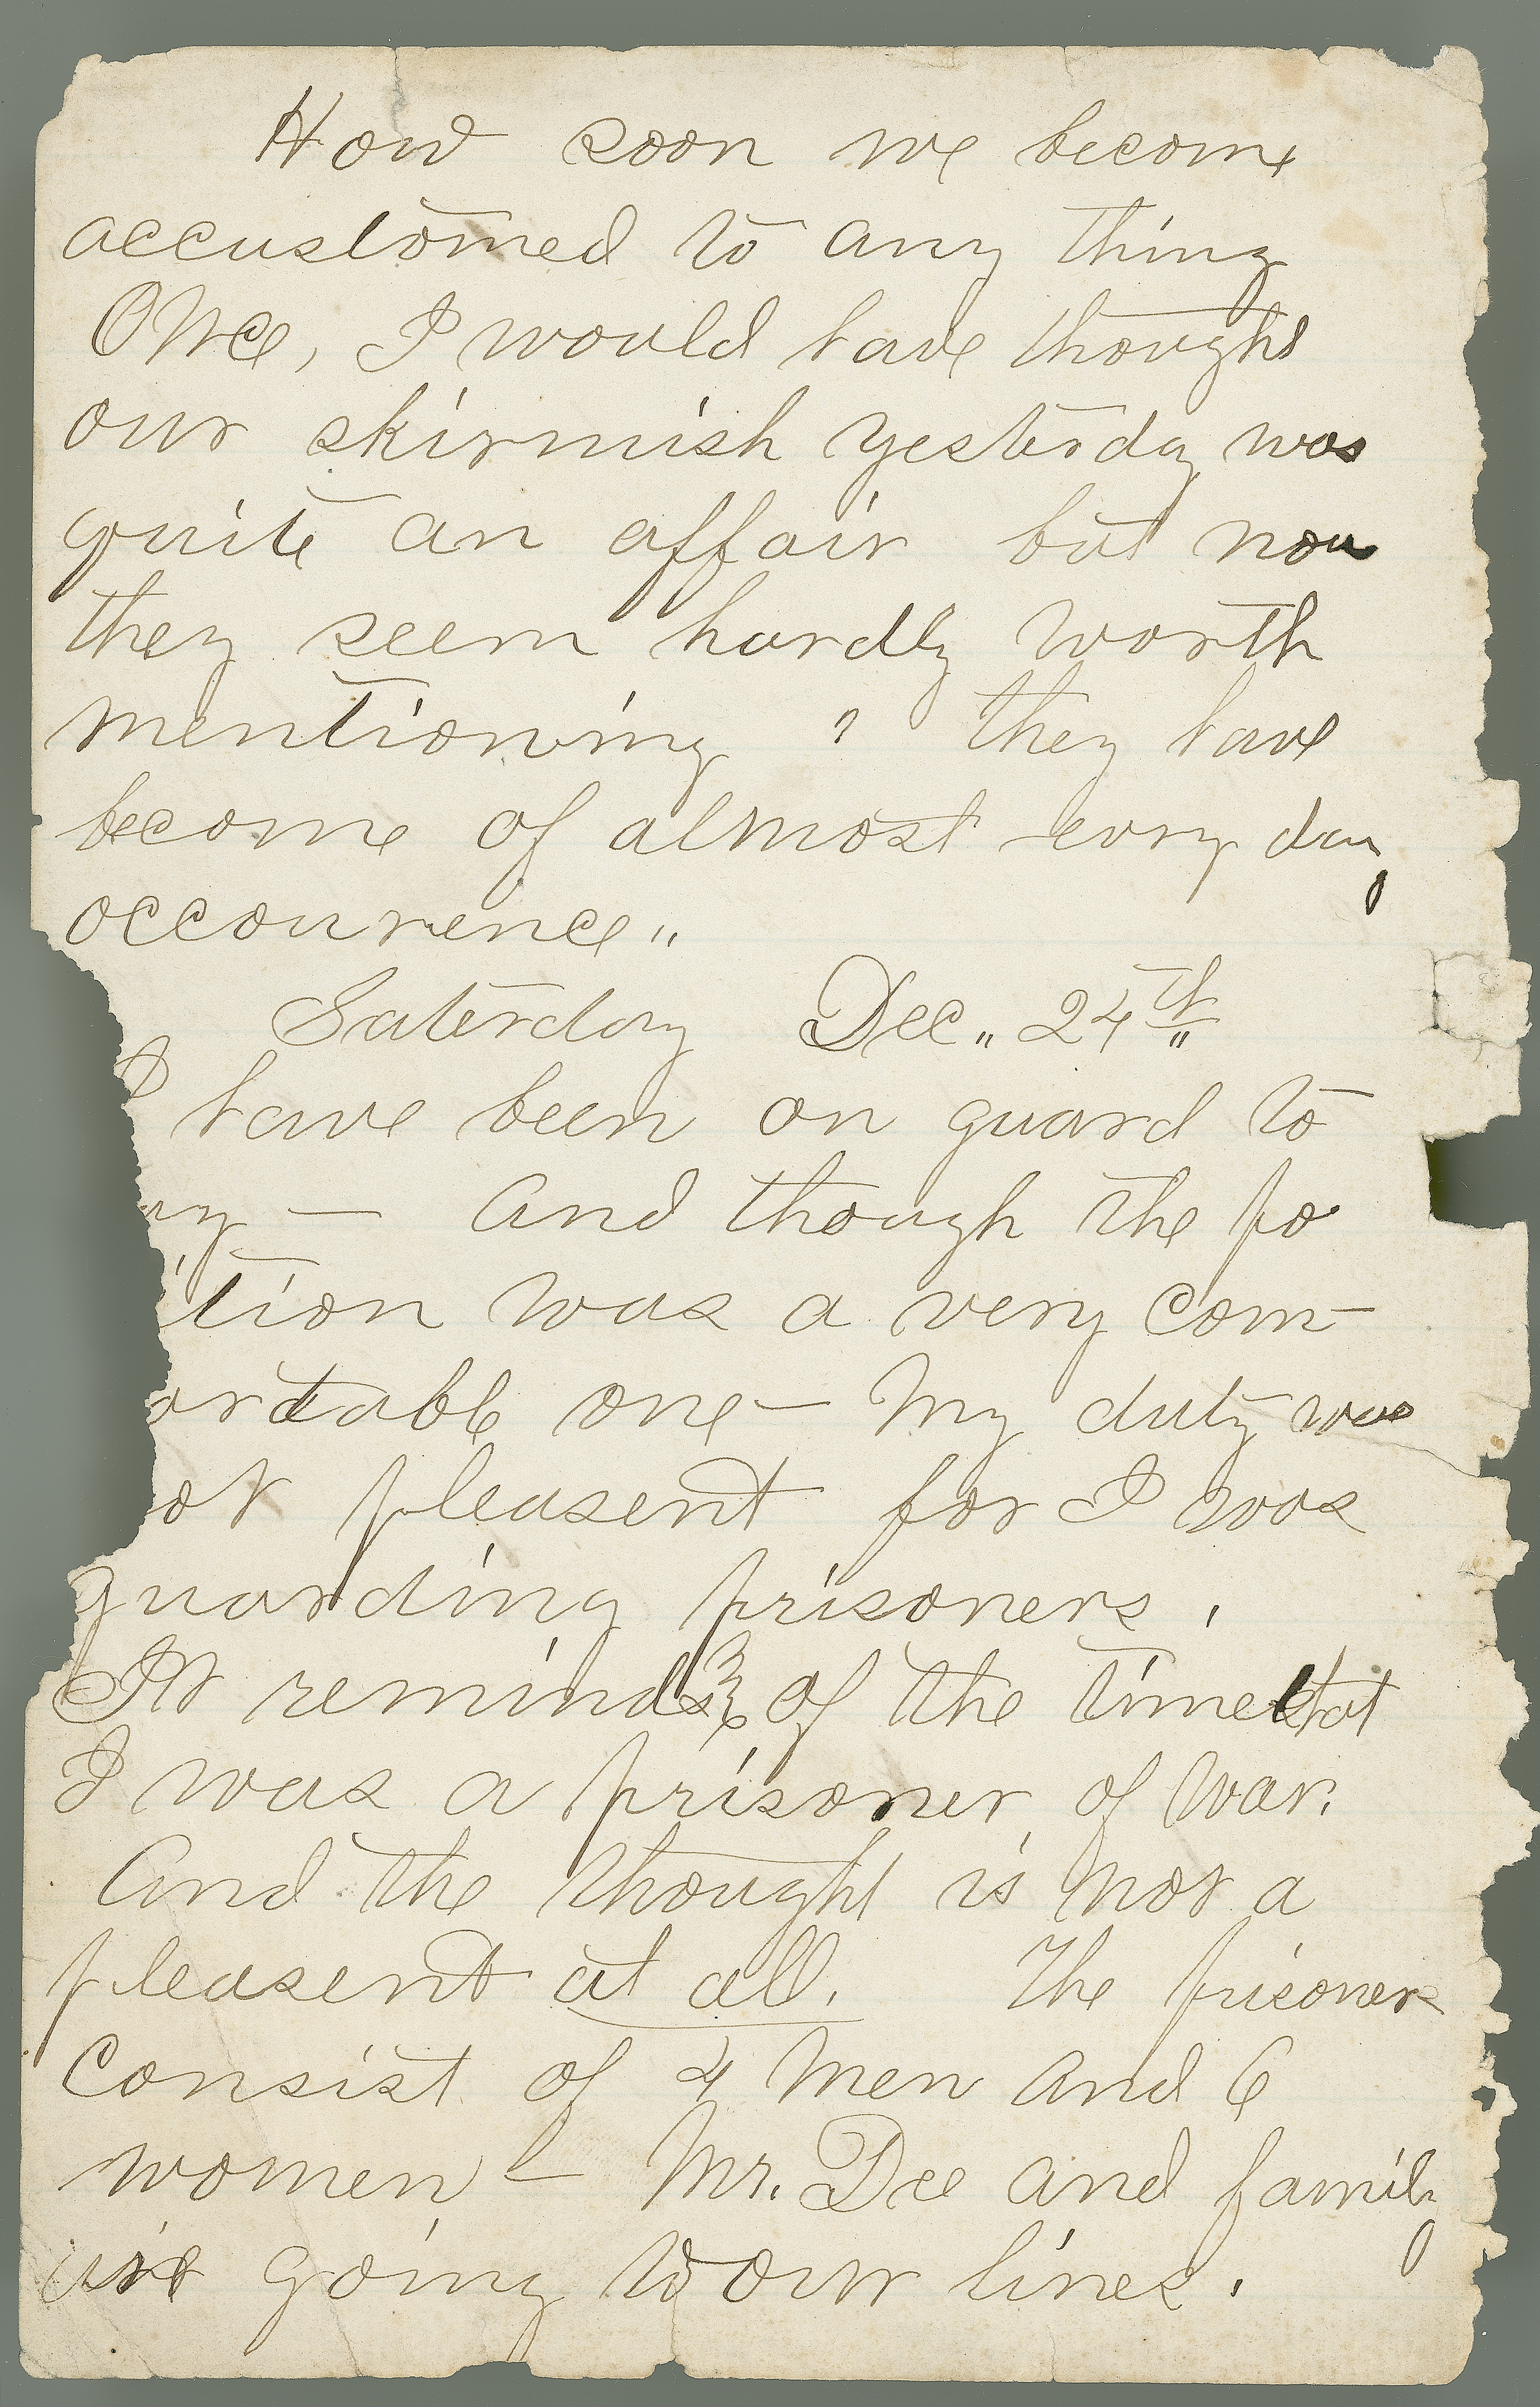 How soon we become
accustomed to any thing
Once, I would have thought
our skirmish yesterday was
quite an affair but now
they seem hardly worth
mentioning " they have
become of almost evry day
occourence "
Saterday Dec. 24th
I have been on guard to
ay — and though the po
ition was a very com-
ortable one — My duty was
ot pleasent for I was
guarding prisoners,
It reminds me of the time that
I was a prisoner of war.
And the thought is not a
pleasent at all. The prisoners
consist of 4 men and 6
women — Mr. Dee and family
are going to our lines.